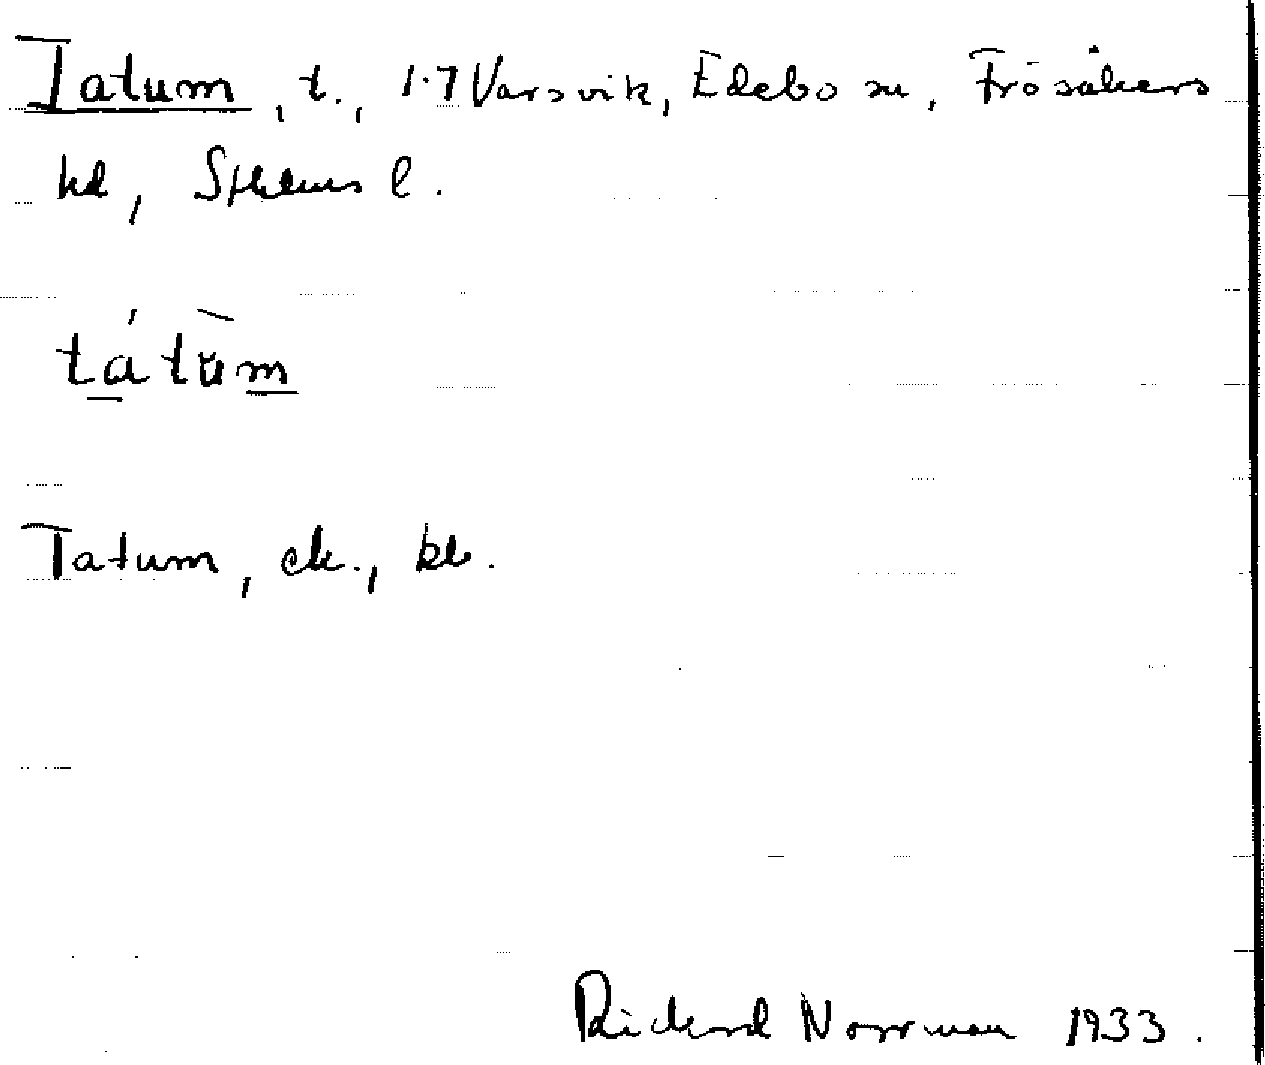 Tatum, t., 1:7 Varsvik, Edebo sn, Frösåkers
hd, Sthlms l.
tátùm
Tatum, ek., kb.
Rickard Norrman 1933.